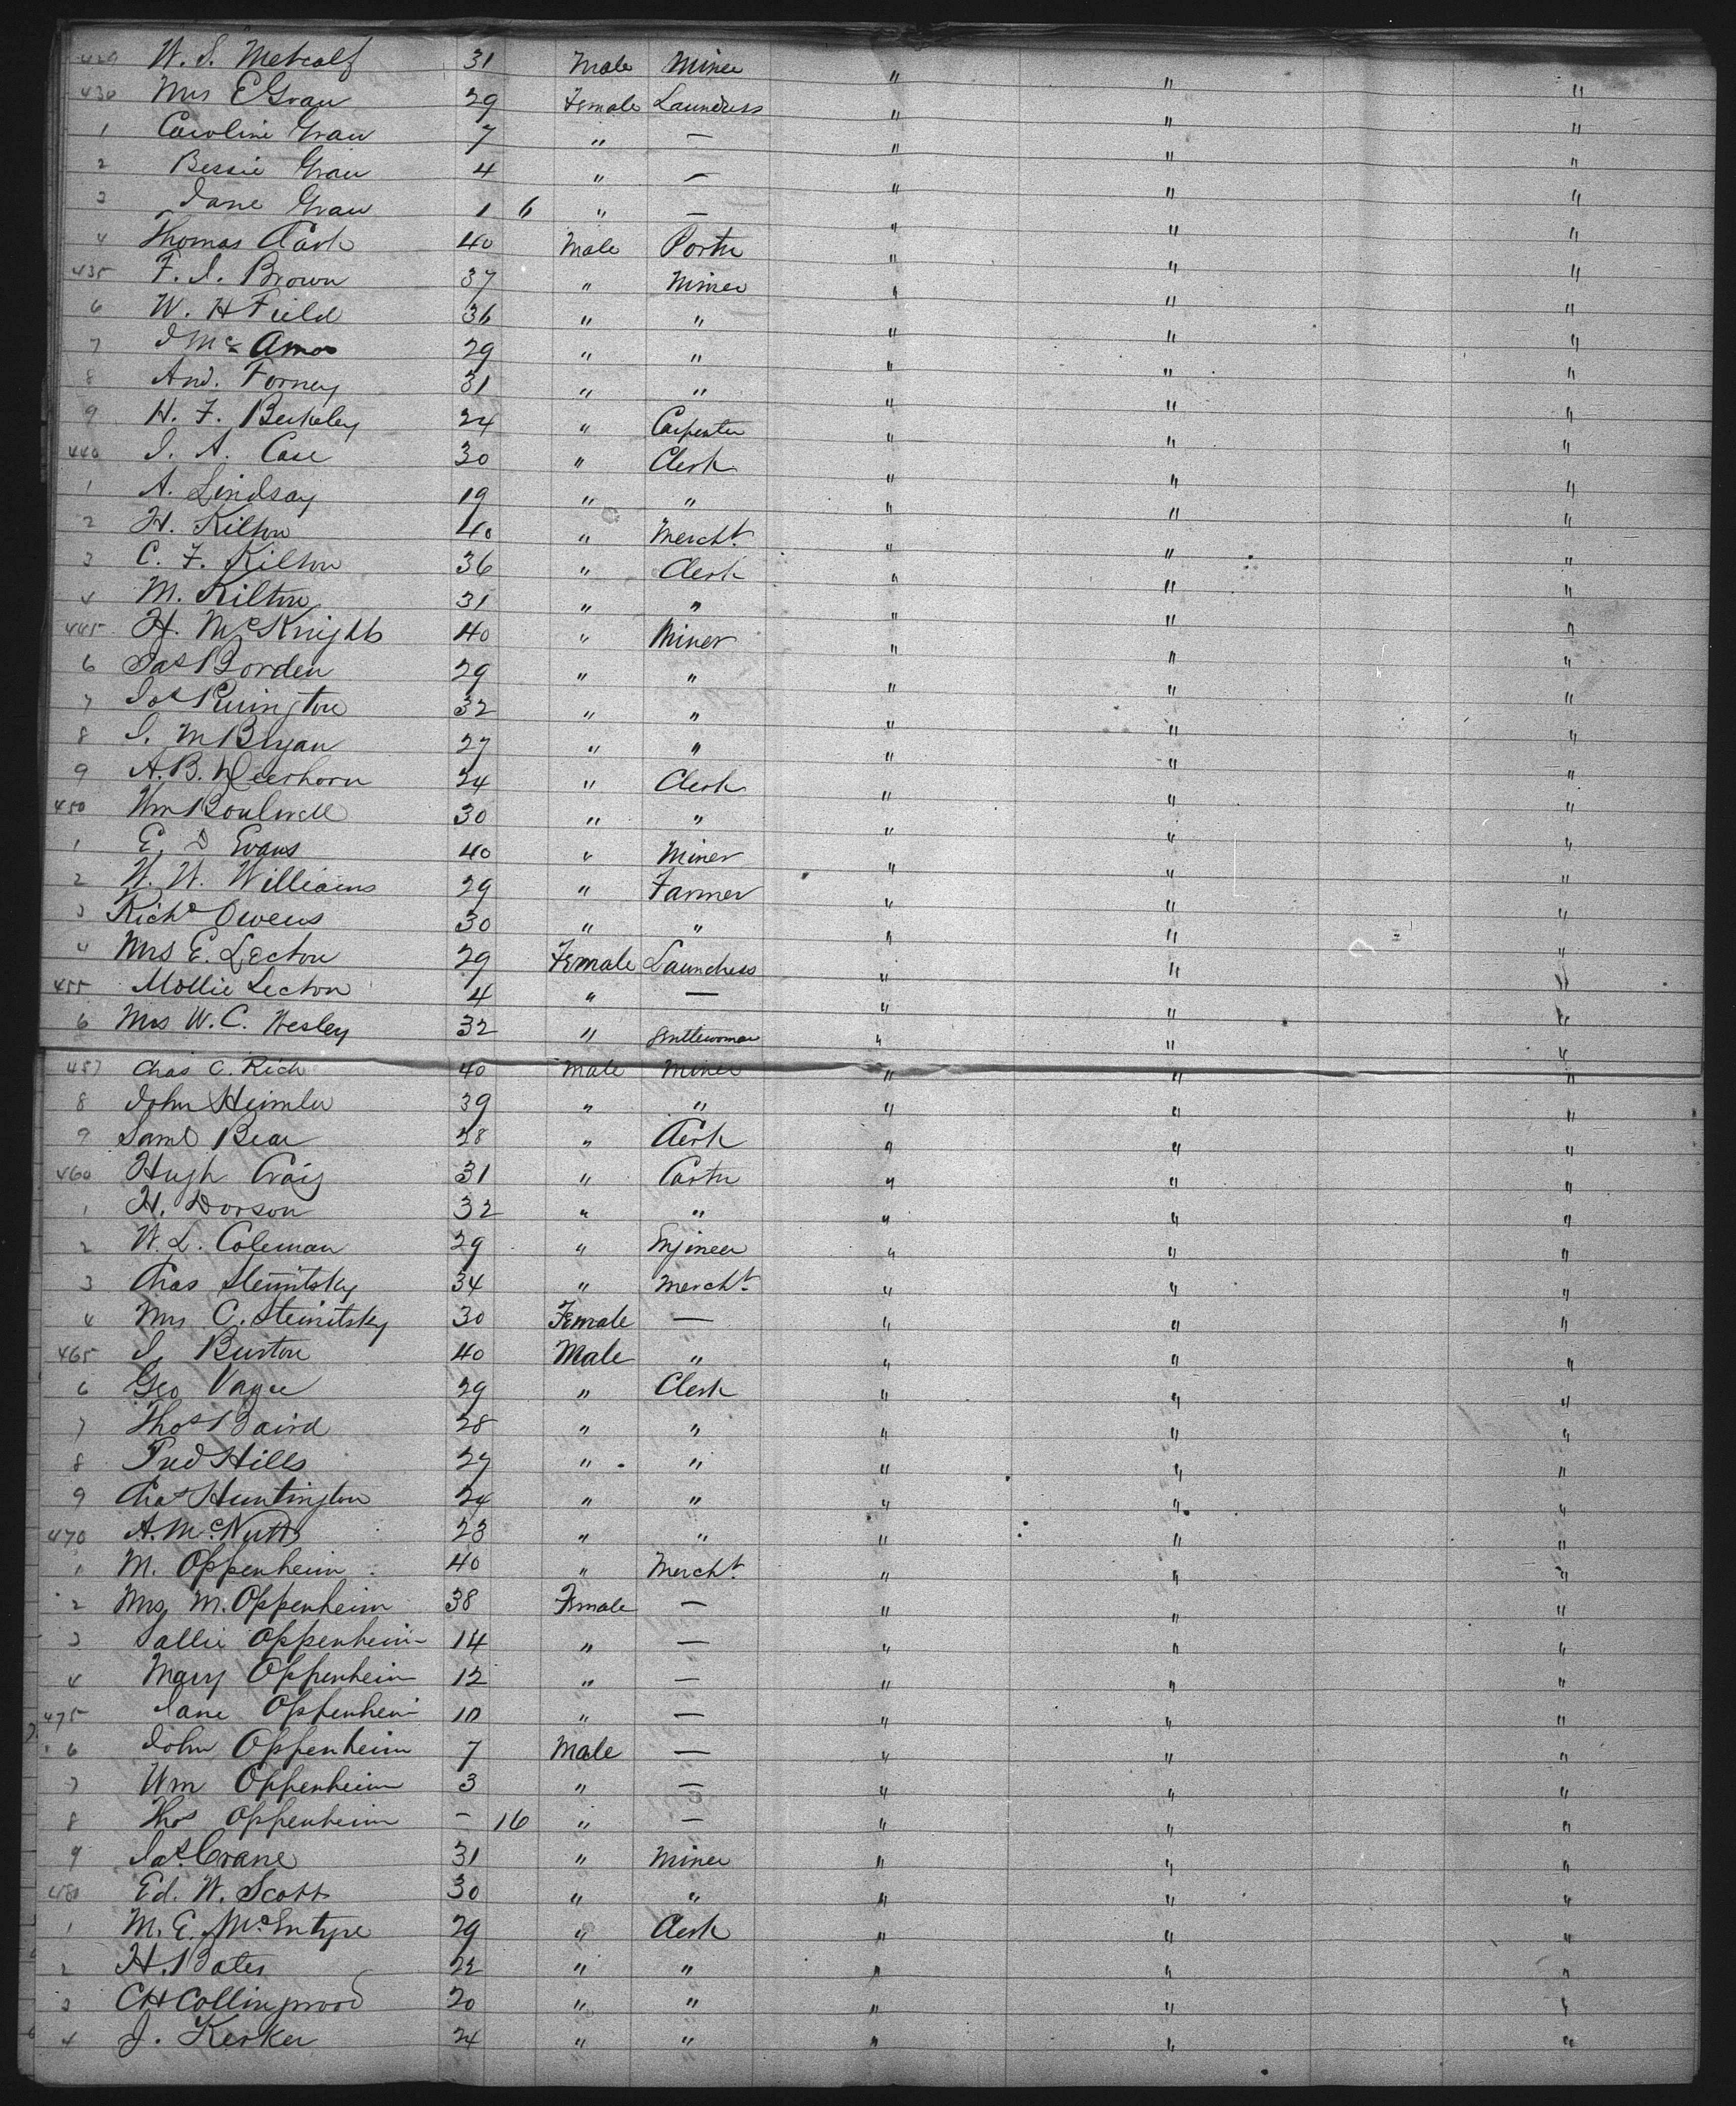 429 W. S. Metcalf 31 Male Miner " " "
430 Mrs E Grau 29 Female Laundress " " "
1 Caroline Grau 7 " — " " "
2 Bessie Grau 4 " — " " "
3 Jane Grau 1 6 " — " " "
4 Thomas Clark 40 Male Porter " " "
435 F. S. Brown 37 " Miner " " "
6 W. H Field 36 " " " " "
7 J Mc Amos 29 " " " " "
8 And. Forney 31 " " " " "
9 H. F. Berkeley 24 " Carpenter " " "
440 J. A. Case 30 " Clerk " " "
1 A. Lindsay 19 " " " " "
2 H. Kilton 40 " Mercht. " " "
3 C. F. Kilton 36 " Clerk " " "
4 M. Kilton 31 " " " " "
445 H. McKnight 40 " Miner " " "
6 Jas Borden 29 " " " " "
7 Jos 32 " " " " "
8 J. M Bryan 27 " " " " "
9 A. B. Deerhorn 24 " Clerk " " "
450 Wm Boulwell 30 " " " " "
1 E. D Evans 40 " Miner " " "
2 W. W. Williams 29 " Farmer " " "
3 Richd Owens 30 " " " " "
4 Mrs E. Lecton 29 Female Laundress " " "
455 Mollie Lecton 4 " — " " "
6 Mrs W. C. Wesley 32 " Gentlewoman " " "
457 Chas C. Rich 40 Male Miner " " "
8 John Heimler 39 " " " " "
9 Saml Bear 28 " Clerk " " "
460 Hugh Craig 31 " Carter " " "
1 H. Dorson 32 " " " " "
2 W. L. Coleman 29 " Engineer " " "
3 Chas Steinitsky 34 " Mercht. " " "
4 Mrs C. Steinitsky 30 Female — " " "
465 J. Burton 40 Male " " " "
6 Geo 29 " Clerk " " "
7 Thos Baird 28 " " " " "
8 Fred Hills 27 " " " " "
9 Chas Huntington 24 " " " " "
470 A. McNutt 23 " " " " "
1 M. Oppenheim 40 " Mercht. " " "
2 Mrs M. Oppenheim 38 Female — " " "
3 Sallie Oppenheim 14 " — " " "
4 Mary Oppenheim 12 " — " " "
475 Jane Oppenheim 10 " — " " "
6 John Oppenheim 7 Male — " " "
7 Wm Oppenheim 3 " — " " "
8 Thos Oppenheim — 16 " — " " "
9 Jas. Crane 31 " Miner " " "
480 Ed. W. Scott 30 " " " " "
1 M. E. McEntyre 29 " Clerk " " "
2 H. Bates 22 " " " " "
3 C H Collingwood 20 " " " " "
4 J. Kerker 24 " " " " "